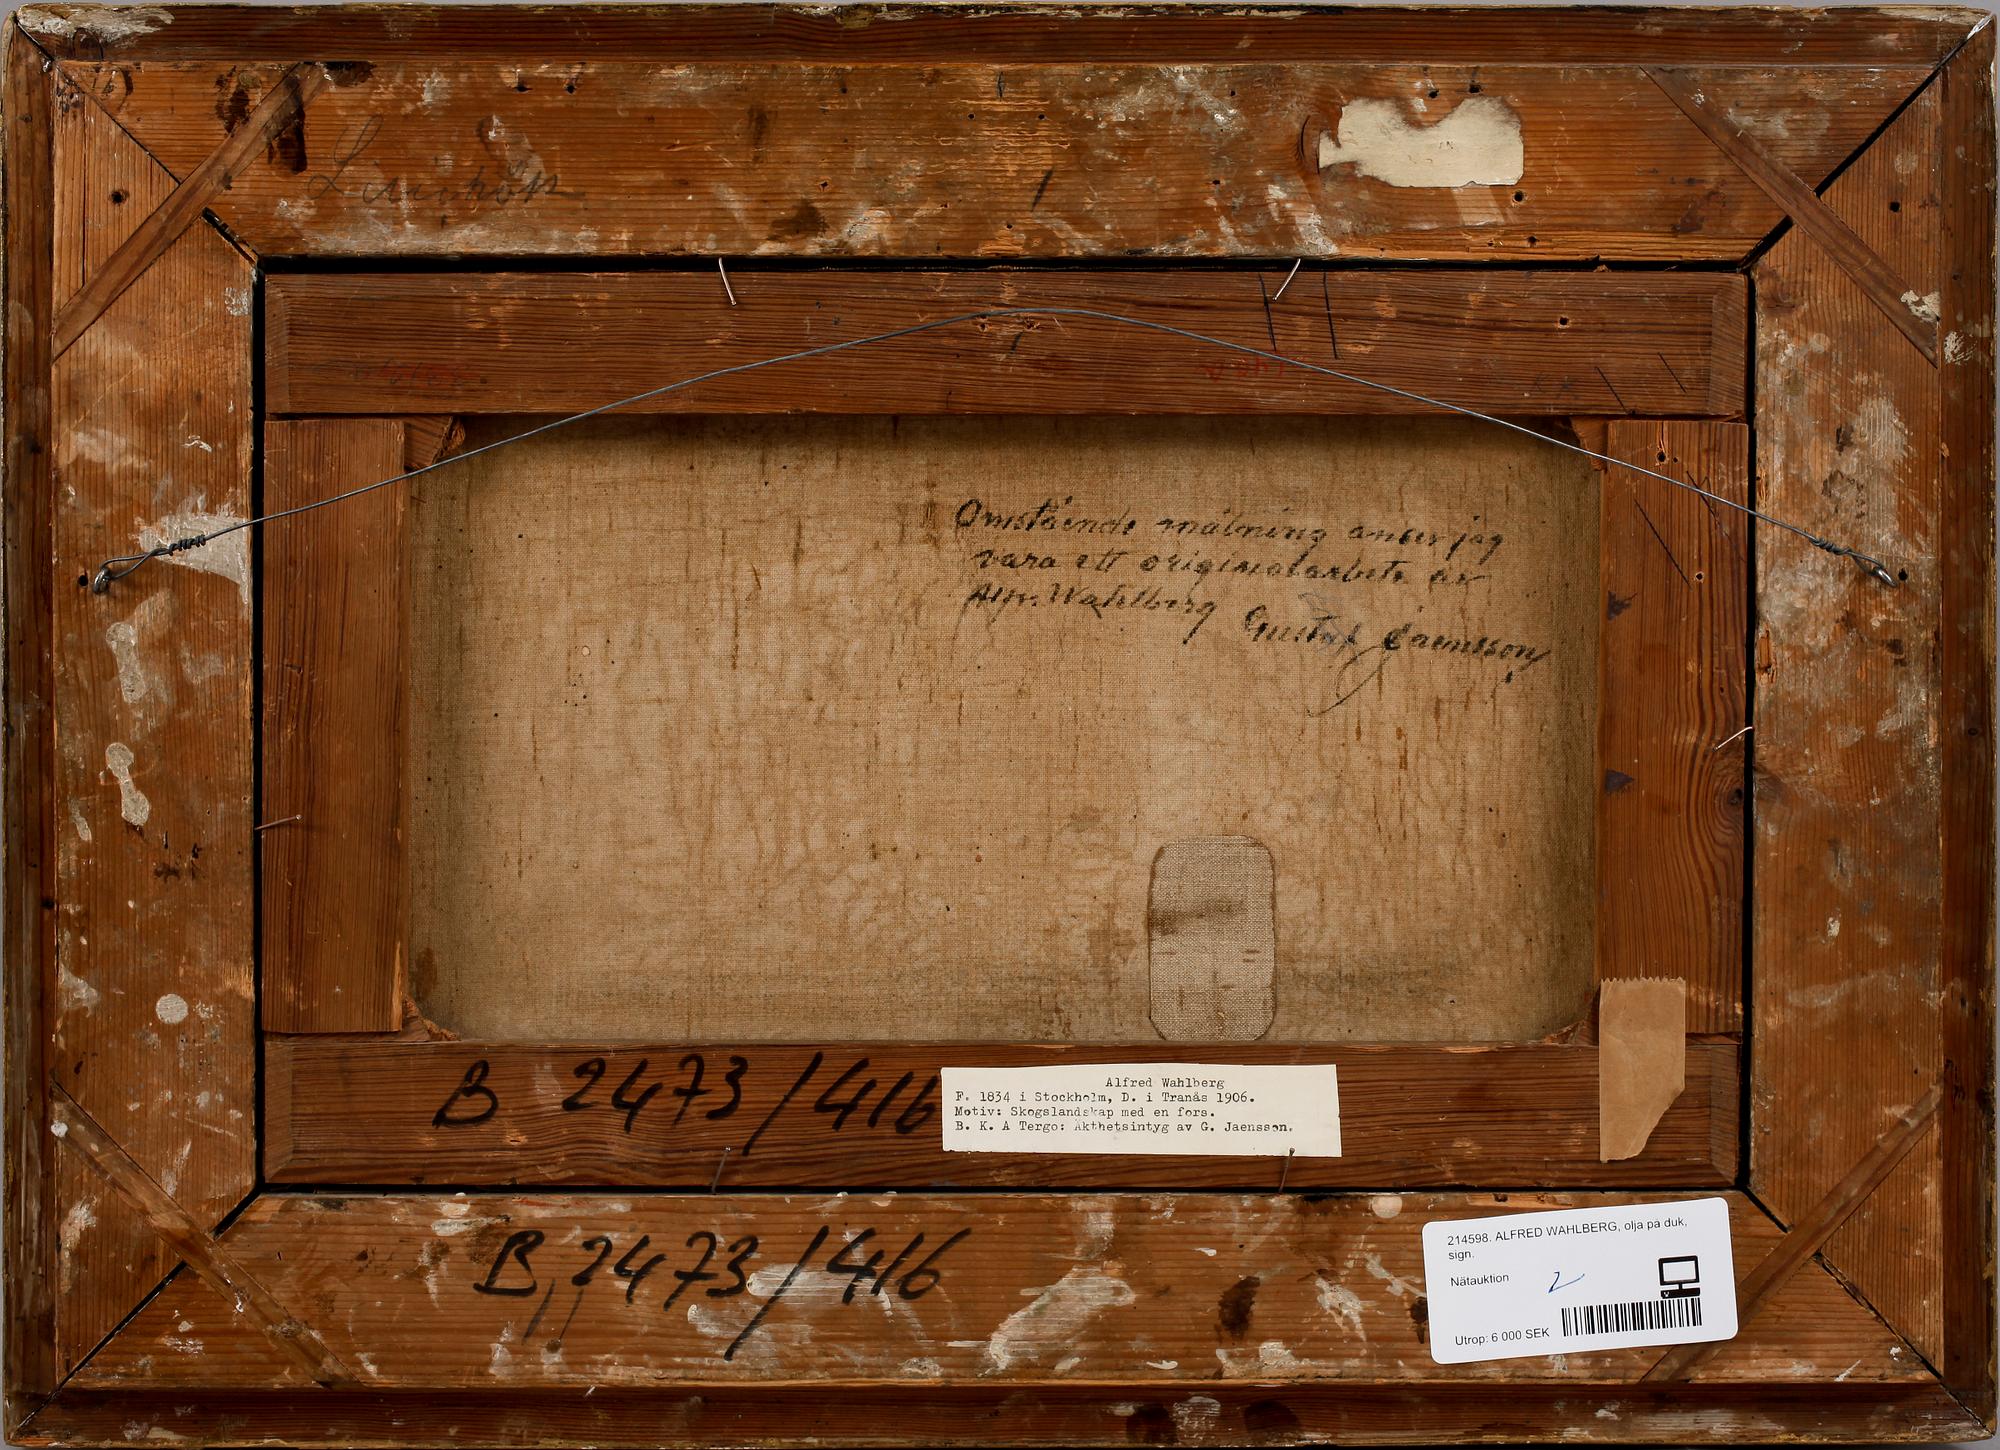 Omstående målning anser jag
vara ett originalarbete av
Alfr. Wahlberg
Gustaf Jaensson
B 2473/416
Alfred Wahlberg
F. 1834 i Stockholm, D. i Tranås 1906.
Motiv: Skogslandskap med en fors.
B. K. A Tergo: Äkthetsintyg av G. Jaensson.
B, 2473/416
214598. ALFRED WAHLBERG, olja på duk,
sign.
Nätauktion
Utrop: 6 000 SEK